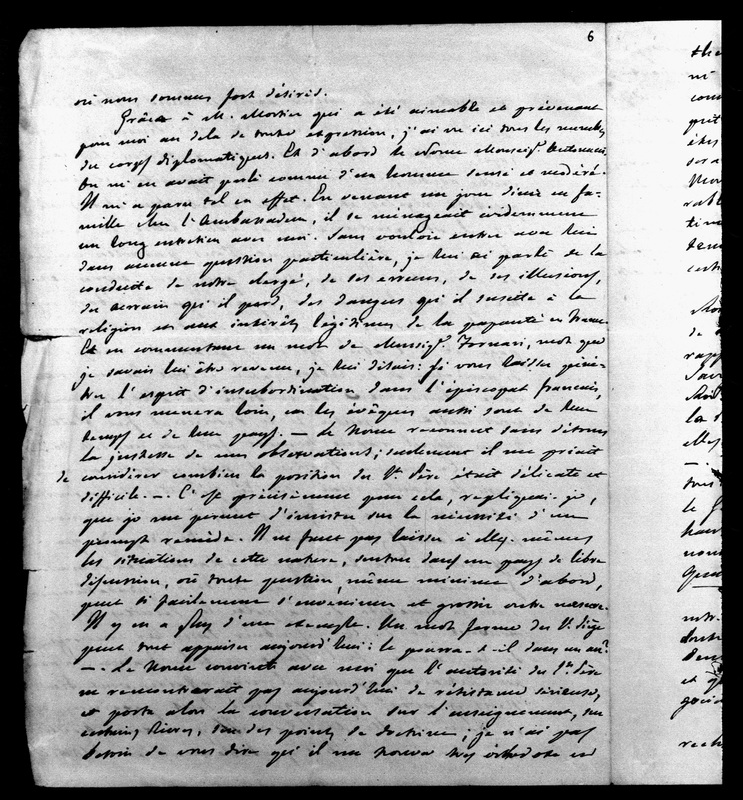 6
où nous sommes fort désirés.
Grâce à M. Mortier qui a été aimable et prévenant
pour moi au delà de toute expression, j'ai vu ici tous les membres
du corps diplomatique. Et d'abord le Nonce Monsig.
On m'en avait parlé comme d'un homme sensé et modéré.
Il m'a paru tel en effet. En venant un jour dîner en fa-
mille chez l'Ambassadeur, il se ménageait évidemment
un long entretien avec moi. Sans vouloir entrer avec lui
dans aucune question particulière, je lui ai parlé de la
conduite de notre clergé, de ses erreurs, de ses illusions,
du terrain qu'il perd, des dangers qu'il suscite à la
religion et aux intérêts légitimes de la papauté en France.
Et en commentant un mot de Monsig. Fornari, mot que
je savais lui être revenu, je lui disais: si vous laissez péné-
trer l'esprit d'insubordination dans l'épiscopat français,
il vous menera loin, car les évêques aussi sont de leur
temps et de leur pays. — Le Nonce reconnut sans détours
la justesse de mes observations; seulement il me priait
de considérer combien la position du St. Père était délicate et
difficile. — C'est précisément pour cela, repliquai-je,
que je me permet d'insister sur la nécessité d'un
prompt remède. Il ne faut pas laisser à elles-mêmes
les situations de cette nature, surtout dans un pays de libre
discussion, où toute question, même minime d'abord,
peut si facilement s'envenimer et grossir outre mesure.
Il y en a plus d'un exemple. Un mot ferme du St. Siège
peut tout appaiser aujourd'hui: le pourra-t-il dans un an?
— Le Nonce convint avec moi que l'autorité du St. Père
ne rencontrerait pas aujourd'hui de résistance sérieuse,
et porta alors la conversation sur l'enseignement, sur
certains livres, sur des points de doctrine; je n'ai pas
besoin de vous dire qu'il me trouva très orthodoxe et